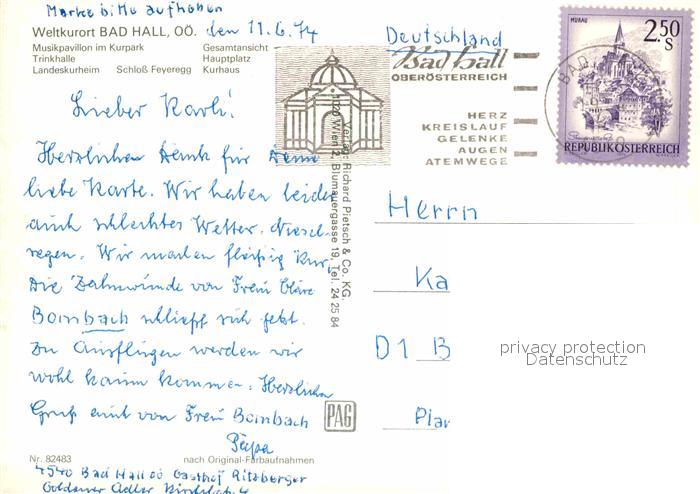 Marke bitte aufheben
Weltkurort BAD HALL, OÖ. den 11.6.74
Musikpavillon im Kurpark Gesamtansicht
Trinkhalle Hauptplatz
Landeskurheim Schloß Feyeregg Kurhaus
Deutschland
Bad Hall
OBERÖSTERREICH
HERZ
KREISLAUF
GELENKE
AUGEN
ATEMWEGE
BAD
MURAU
2.50
S
REPUBLIK ÖSTERREICH
Lieber Karli!
Herzlichen Dank für Deine
liebe Karte. Wir haben leider
auch schlechtes Wetter. Niesel-
regen. Wir machen fleißig Kur.
Die Zahnwunde von Frau Cläre
Bombach schließt sich jetzt.
Zu Ausflügen werden wir
wohl kaum kommen. Herzlichen
Gruß auch von Frau Bombach
Papa
Verlag: Richard Pietsch & Co. KG.
1020 Wien 2, Blumauergasse 19, Tel. 24 25 84
Herrn
Ka
D 1 B
Plan
privacy protection
Datenschutz
PAG
Nr. 82483 nach Original-Farbaufnahmen
4540 Bad Hall OÖ Gasthof Ritzberger
Goldener Adler